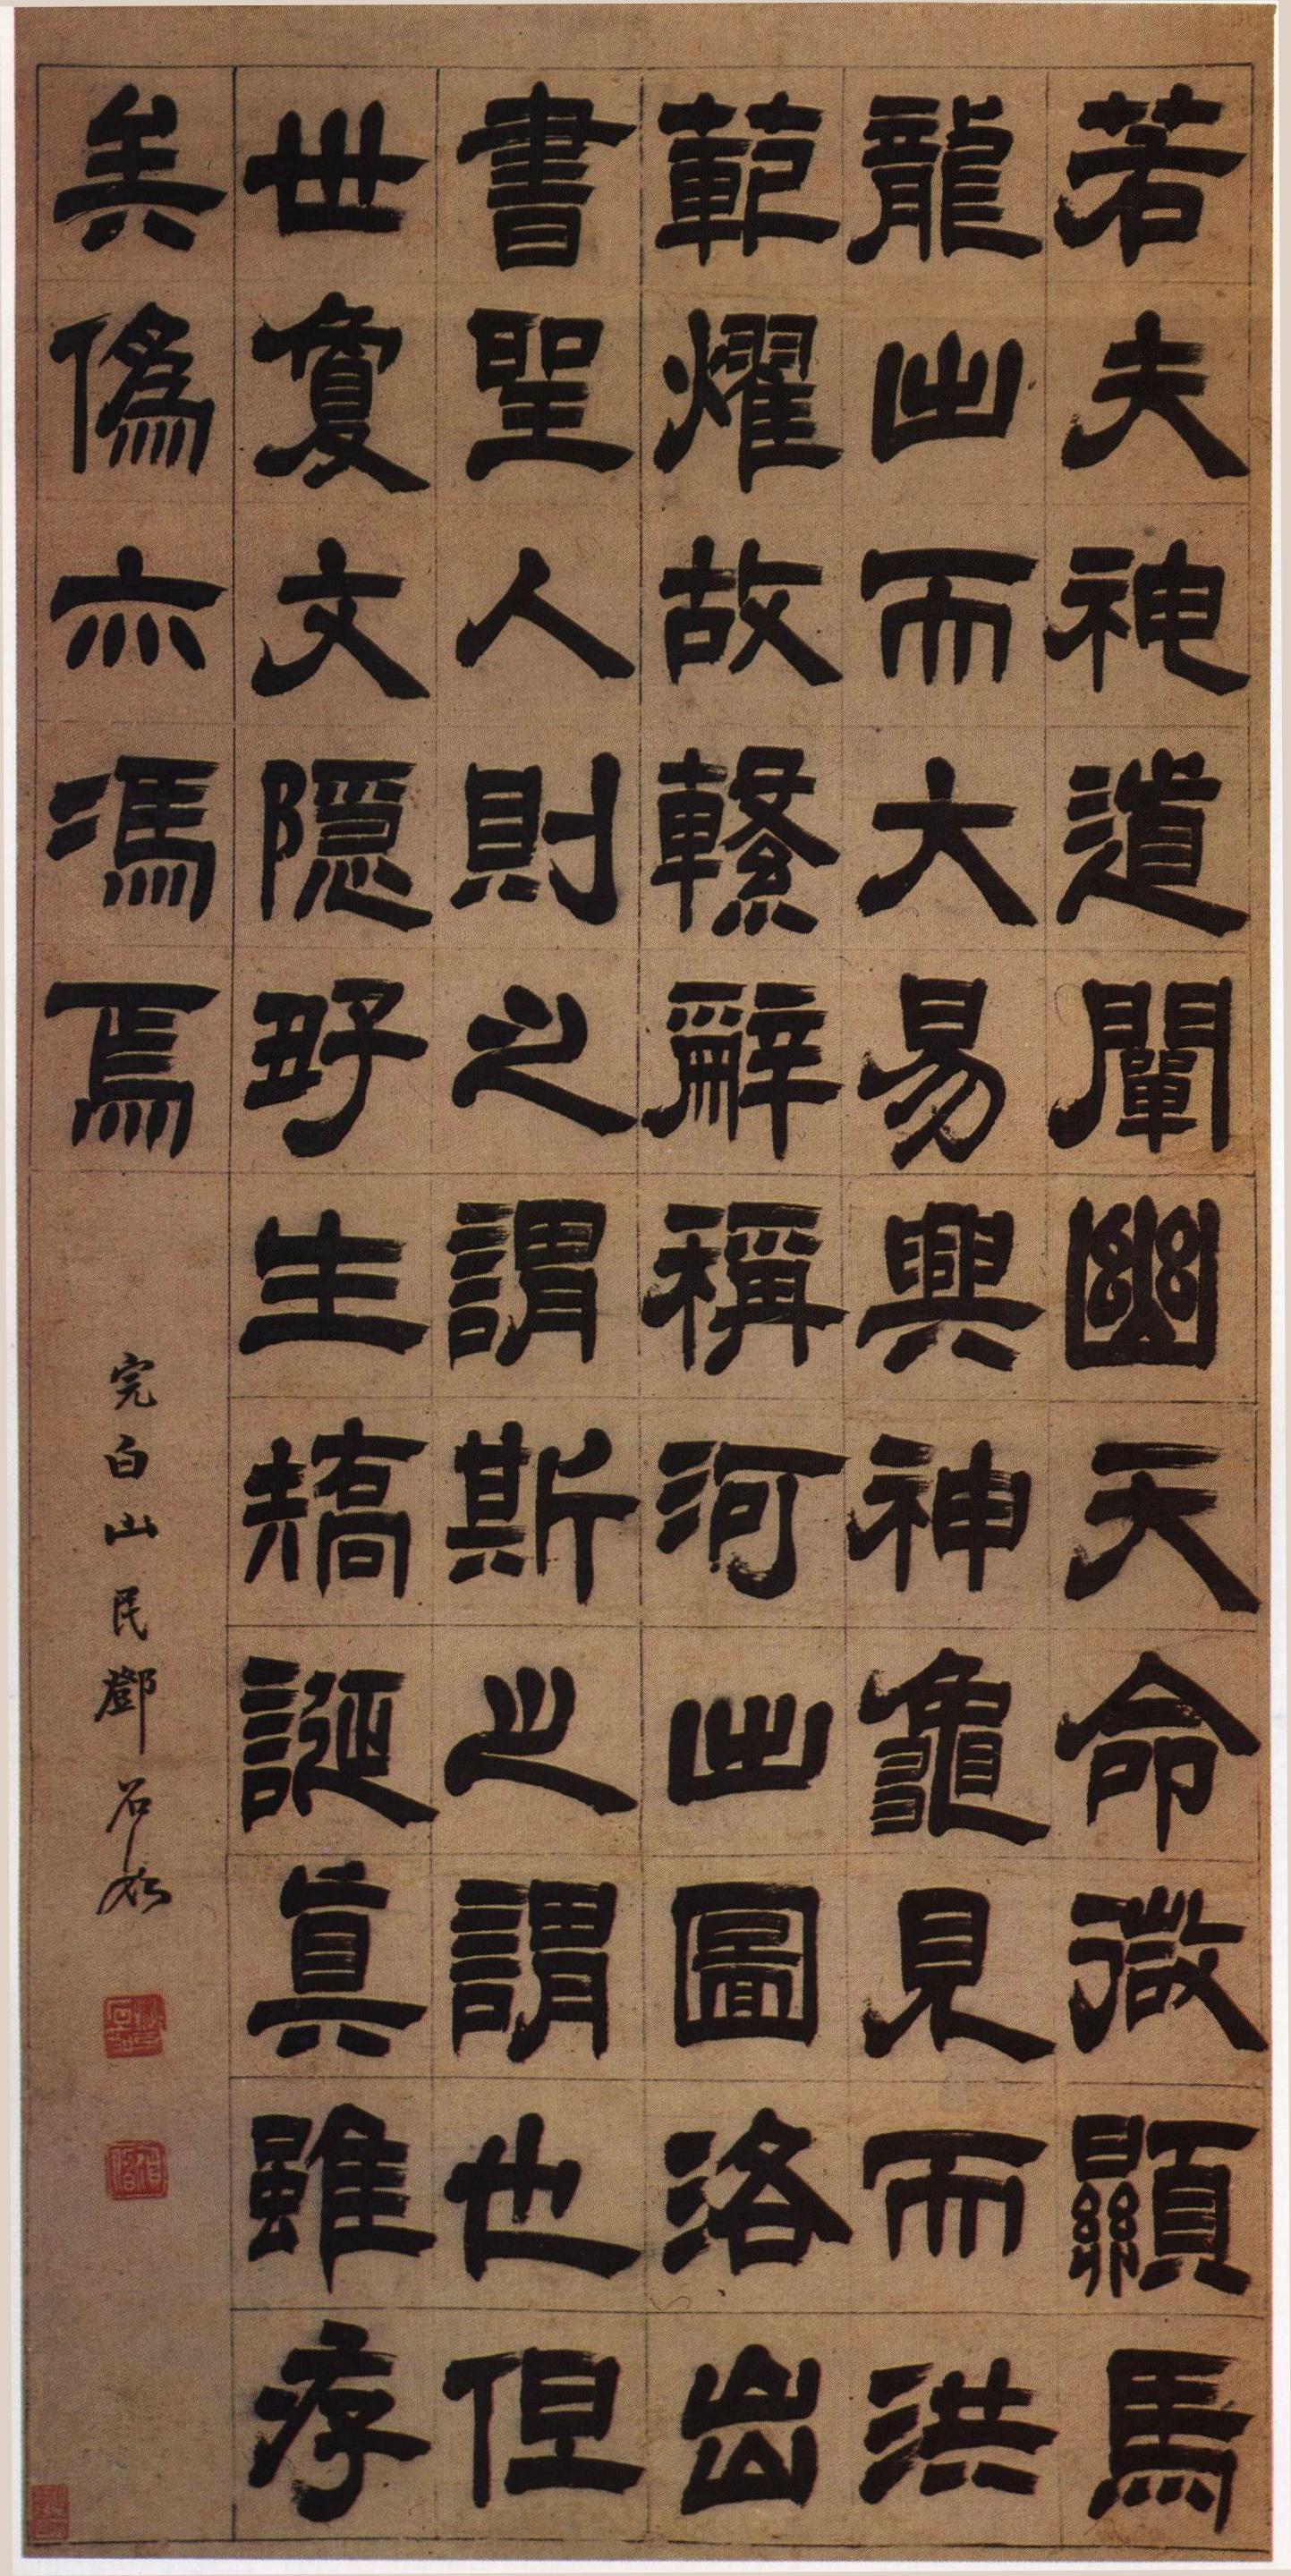 若夫神道闡幽天命微顯馬
龍出而大易興神龜見而洪
範燿故繫辭稱河出圖洛出
書聖人則之謂斯之謂也但
世敻文隱好生矯誕真雖存
矣僞亦馮焉
完白山民鄧石如